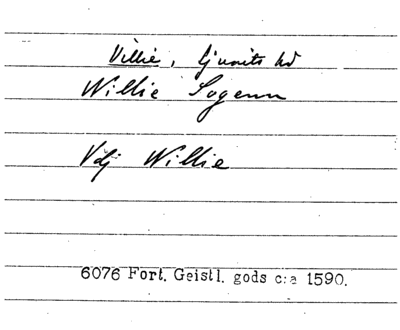 Villie, Ljunits hd
Willie Sogenn
Vdj Willie
6076 Fort. Geistl. gods c:a 1590.